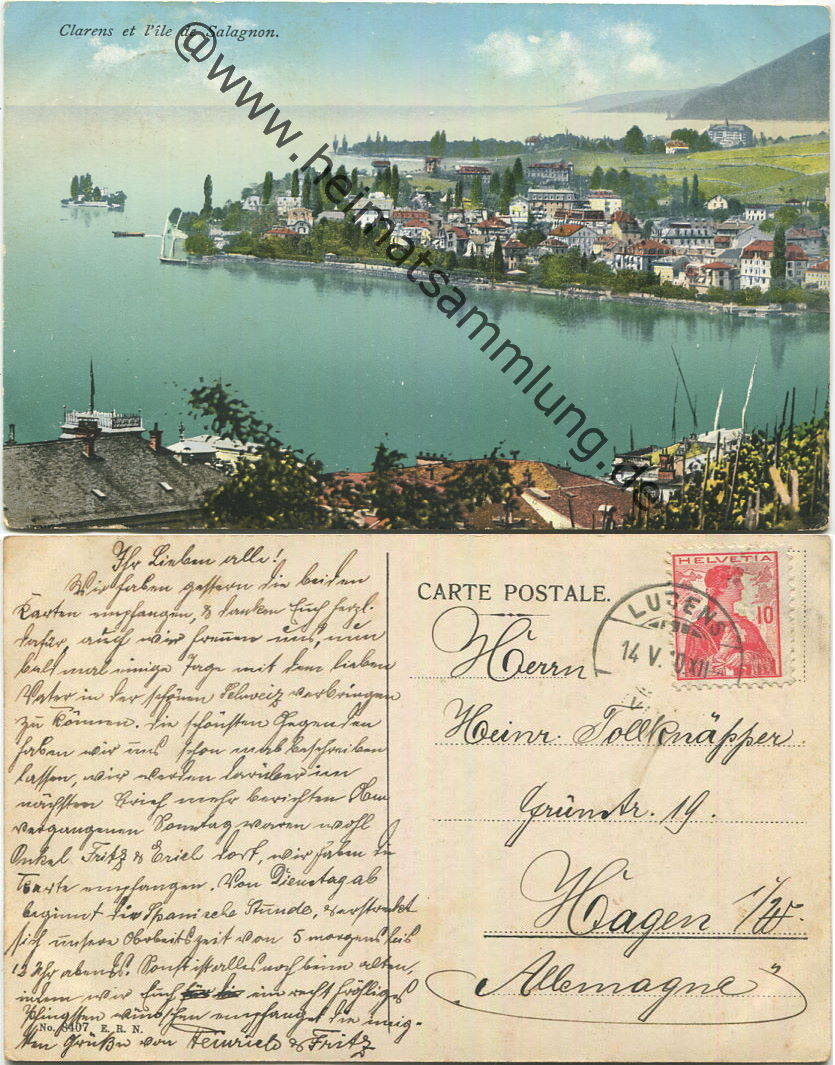 Clarens et l'île de Salagnon.
@www.heimatsammlung.de©
Ihr Lieben alle!
Wir haben gestern die beiden
Karten empfangen, & danken Euch herzl.
dafür, auch wir freuen uns, nun
bald mal einige Tage mit dem lieben
Vater in der schönen Schweiz verbringen
zu können. Die schönsten Gegenden
haben wir uns schon mal beschreiben
lassen, wir werden darüber im
nächsten Brief mehr berichten. Am
vergangenen Sonntag waren wohl
Onkel Fritz & dort, wir haben die
Karte empfangen. Von Dienstag ab
beginnt die Spanische Stunde, & erstreckt
sich unsere Arbeitszeit von 5 morgens bis
12 Uhr abends. Sonst ist alles noch beim alten,
indem wir Euch ein recht fröhliges
Pfingsten wünschen empfanget die innig-
sten Grüße von Heinrich & Fritz
No. 8407 E. R. N.
CARTE POSTALE.
HELVETIA
10
LUCENS
14 V. 10 XII
Herrn
Heinr. Tollknäpper
Grünstr. 19.
Hagen i/W.
Allemagne